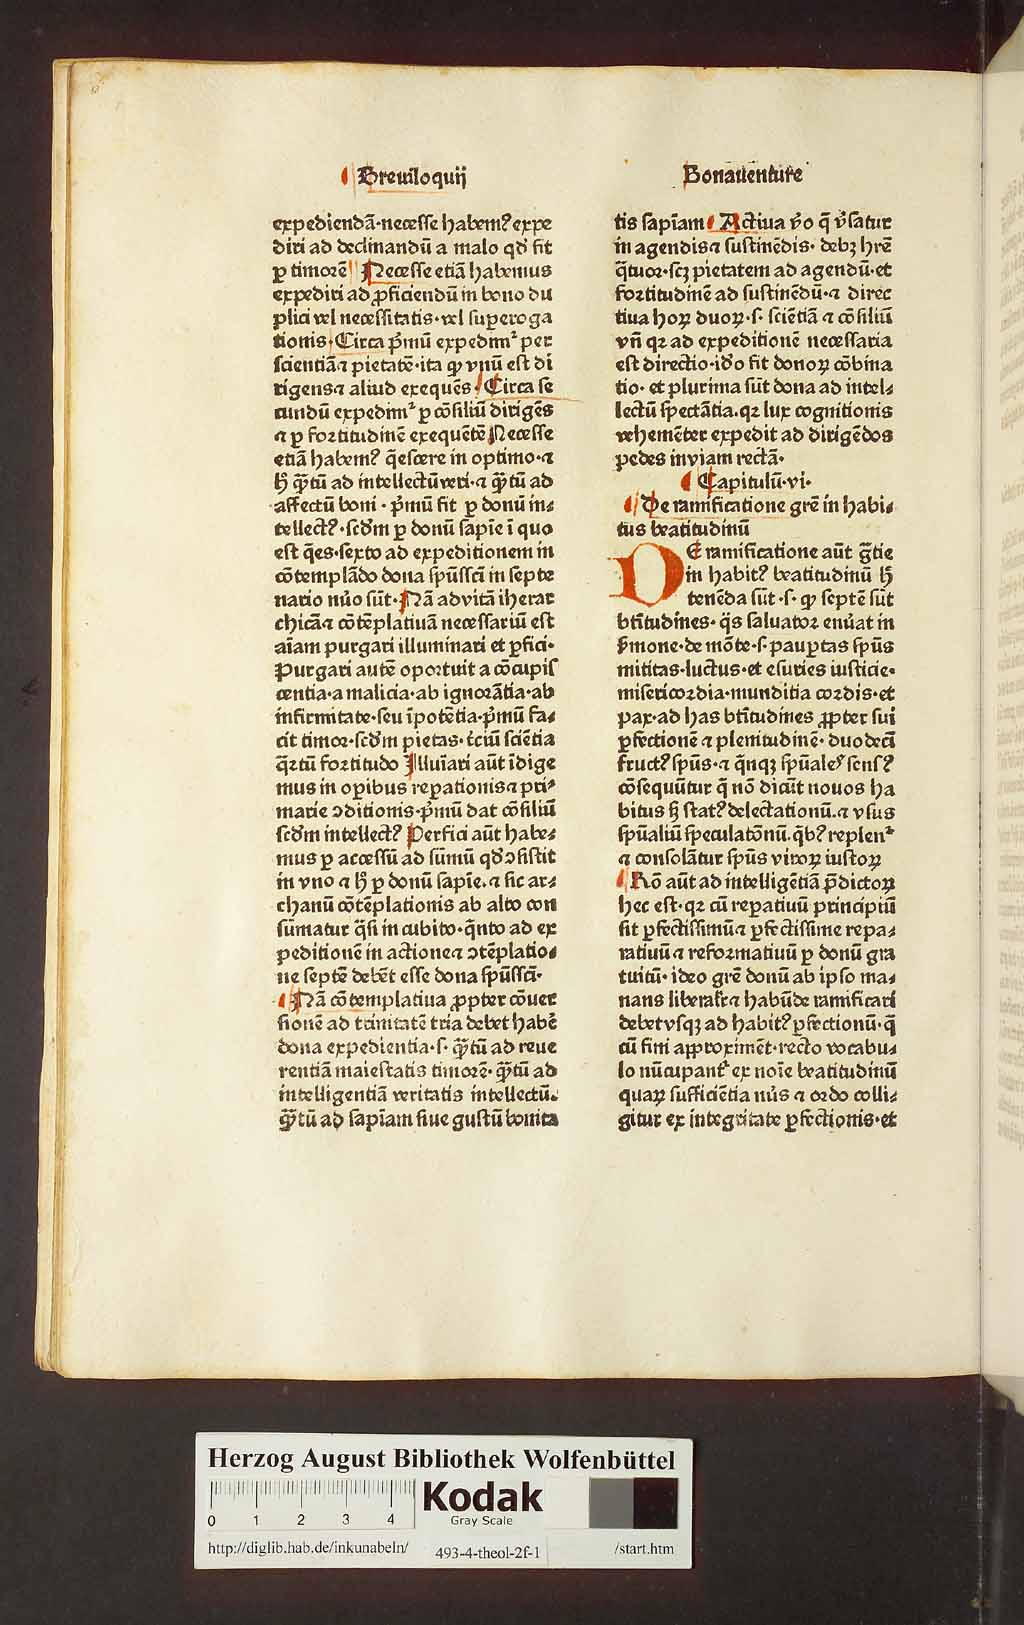 Breuiloquij
Bonauenture
expediendā·necesse habemꝰ expe
diri ad declinandū a malo qd̓ fit
ꝑ timorē Necesse etiā habemus
expediri ad ꝓficiendū in bono du
plici vel necessitatis·vel superoga
tionis·Circa pͥmū expedimᷣ per
scientiā ⁊ pietatē·ita ꝙ vnū est di
rigens ⁊ aliud exequēs·Circa se
cundū expedimᷣ ꝑ cōsiliū dirigēs
⁊ ꝑ fortitudinē exequētē Necesse
etiā habemꝰ q̄escere in optimo·⁊
h̄ qͣ̄tū ad intellectū veri·⁊ qͣ̄tū ad
affectū boni·pͥmū fit ꝑ donū in⸗
tellectꝰ·scd̓m ꝑ donū sapīe ī quo
est q̄es·sexto ad expeditionem in
cōtemplādo dona spūssc̄i in septe
nario nūo sūt·Nā ad vitā iherar
chicā ⁊ cōtēplatiuā necessariū est
aīam purgari illuminari et ꝑfici·
Purgari autē oportuit a cōcupis
centia·a malicia·ab ignorātia·ab
infirmitate·seu īpotētia·pͥmū fa⸗
cit timor·scd̓m pietas·tc̄iū sciētia
qͣrtū fortitudo Illuīari aūt īdige
mus in oꝑibus reꝑationis ⁊ pri⸗
marie ꝯditionis·pͥmū dat cōsiliū
scd̓m intellectꝰ Perfici aūt habe⸗
mus ꝑ accessū ad sūmū qd̓ ꝯsistit
in vno ⁊ h̄ ꝑ donū sapīe.⁊ sic ar⸗
chanū cōtēplationis ab alto con
sūmatur qͣsi in cubito·qͥnto ad ex
peditionē in actione ⁊ ꝯtēplatio⸗
ne septē debēt esse dona spūssc̄i·
Nā cōtemplatiua ꝓpter cōuer
sionē ad trinitatē tria debet habē
dona expedientia·s·qͣ̄tū ad reue
rentiā maiestatis timorē·qͣ̄tū ad
intelligentiā veritatis intellectū.
qͣ̄tū ad sapīam siue gustū bonita
tis sapīam Actiua v̄o q̄ v̓satur
in agendis ⁊ sustinēdis·debꝫ hr̄e
qͣtuor·scꝫ pietatem ad agendū·et
fortitudinē ad sustinēdū·⁊ direc
tiua hoꝝ duoꝝ·s·sciētiā ⁊ cōsiliū
vn̄ qꝛ ad expeditionē necessaria
est directio·iđo fit donoꝝ cōbina
tio·et plurima sūt dona ad intel⸗
lectū spectātia.qꝛ lux cognitionis
vehemēter expedit ad dirigēdos
pedes in viam rectā·
Capitulū·vi·
De ramificatione gr̄e in habi⸗
tus beatitudinū
DE ramificatione aūt gͣ̄tie
in habitꝰ beatitudinū h̄
tenēda sūt·s·ꝙ septē sūt
bt̄itudines·qͣs saluator enūat in
s̓mone·de mōte·s·pauꝑtas spūs
mititas·luctus·et esuries iusticie·
misericordia·munditia cordis·et
pax·ad has bt̄itudines ꝓpter sui
ꝑfectionē ⁊ plenitudinē·duodecī
fructꝰ spūs·⁊ qͥnqꝫ spūales sensꝰ
cōsequūtur q̄ nō dicūt nouos ha
bitus sꝫ statꝰ delectationū.⁊ vsus
spūaliū speculatōnū.qͥbꝰ replenᷣ
⁊ consolātur spūs viroꝝ iustoꝝ
Rō aūt ad intelligētiā p̄dictoꝝ
hec est·qꝛ cū reꝑatiuū principiū
sit ꝑfectissimū ⁊ ꝑfectissime repa⸗
ratiuū ⁊ reformatiuū ꝑ donū gra
tuitū·ideo gr̄e donū ab ipso ma⸗
nans liberalr̄ ⁊ habūde ramificari
debet vsqꝫ ad habitꝰ ꝑfectionū·q̄
cū fini approximēt·recto vocabu⸗
lo nūcupantᷣ ex noīe beatitudinū
quaꝝ sufficiētia nūs ⁊ ordo colli⸗
gitur ex integritate ꝑfectionis·et
Herzog August Bibliothek Wolfenbüttel
0 1 2 3 4
Kodak
Gray Scale
http://diglib.hab.de/inkunabeln/ 493-4-theol-2f-1 /start.htm